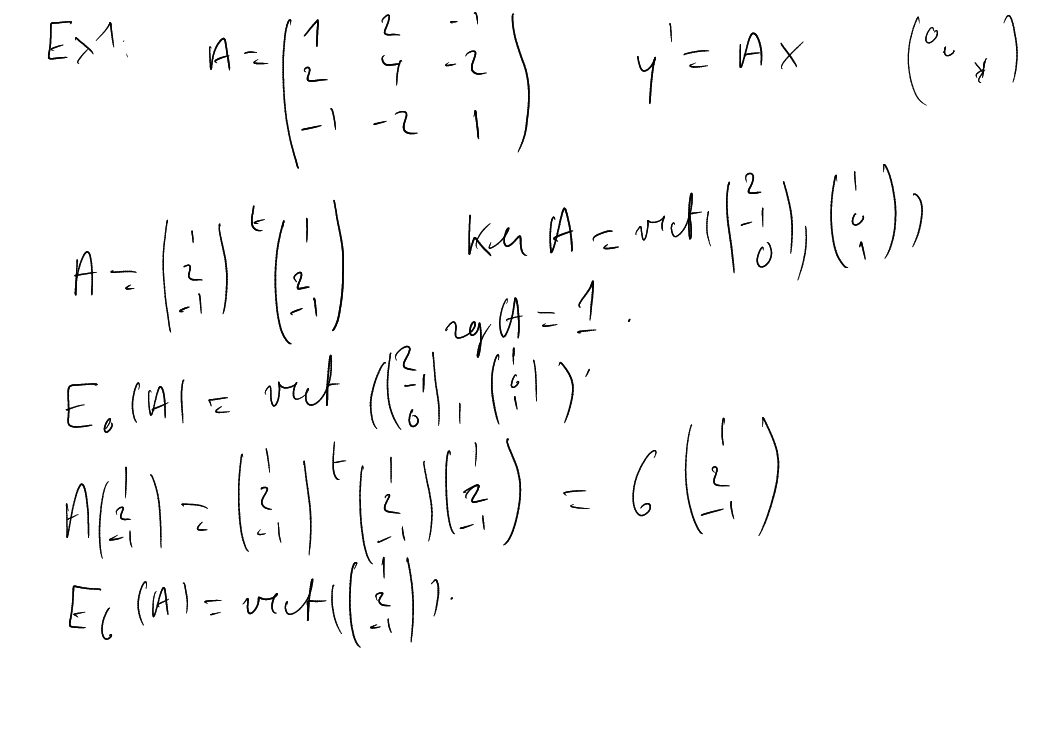 Ex1: A = \begin{pmatrix} 1 & 2 & -1 \\ 2 & 4 & -2 \\ -1 & -2 & 1 \end{pmatrix} y' = Ax \begin{pmatrix} 0 & & \\ & 0 & \\ & & * \end{pmatrix}
A = \begin{pmatrix} 1 \\ 2 \\ -1 \end{pmatrix} ^t\begin{pmatrix} 1 \\ 2 \\ -1 \end{pmatrix} Ker A = vect(\begin{pmatrix} 2 \\ -1 \\ 0 \end{pmatrix}, \begin{pmatrix} 1 \\ 0 \\ 1 \end{pmatrix})
rg A = 1.
E_0(A) = vect(\begin{pmatrix} 2 \\ -1 \\ 0 \end{pmatrix}, \begin{pmatrix} 1 \\ 0 \\ 1 \end{pmatrix});
A\begin{pmatrix} 1 \\ 2 \\ -1 \end{pmatrix} = \begin{pmatrix} 1 \\ 2 \\ -1 \end{pmatrix} ^t\begin{pmatrix} 1 \\ 2 \\ -1 \end{pmatrix}\begin{pmatrix} 1 \\ 2 \\ -1 \end{pmatrix} = 6\begin{pmatrix} 1 \\ 2 \\ -1 \end{pmatrix}
E_6(A) = vect(\begin{pmatrix} 1 \\ 2 \\ -1 \end{pmatrix}).